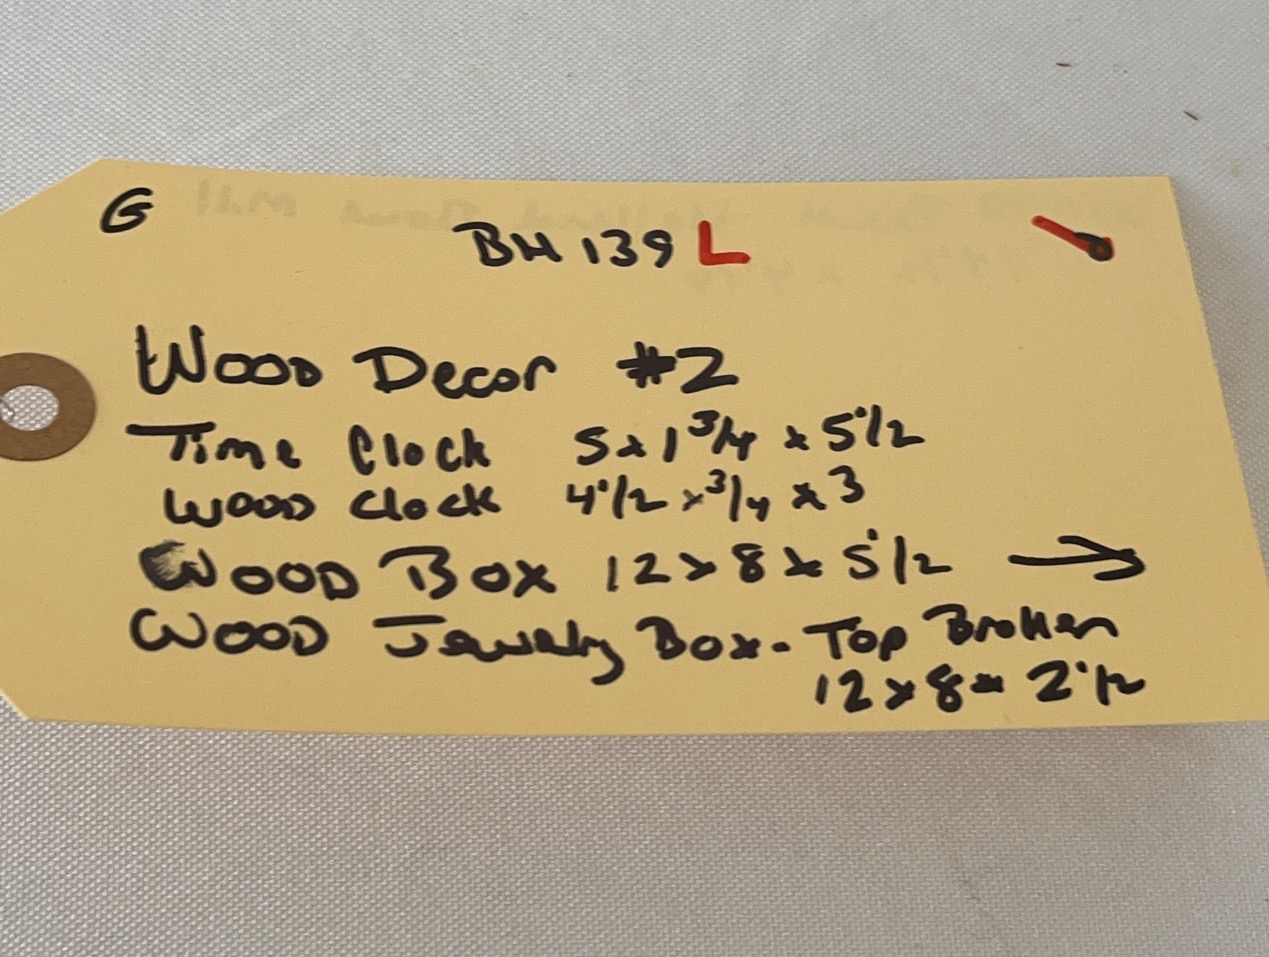 G
BH 139 L
Wood Decor #2
Time Clock 5 x 1 3/4 x 5 1/2
Wood Clock 4 1/2 x 3/4 x 3
Wood Box 12 x 8 x 5 1/2 →
Wood Jewelry Box - Top Broken
12 x 8 x 2 1/2